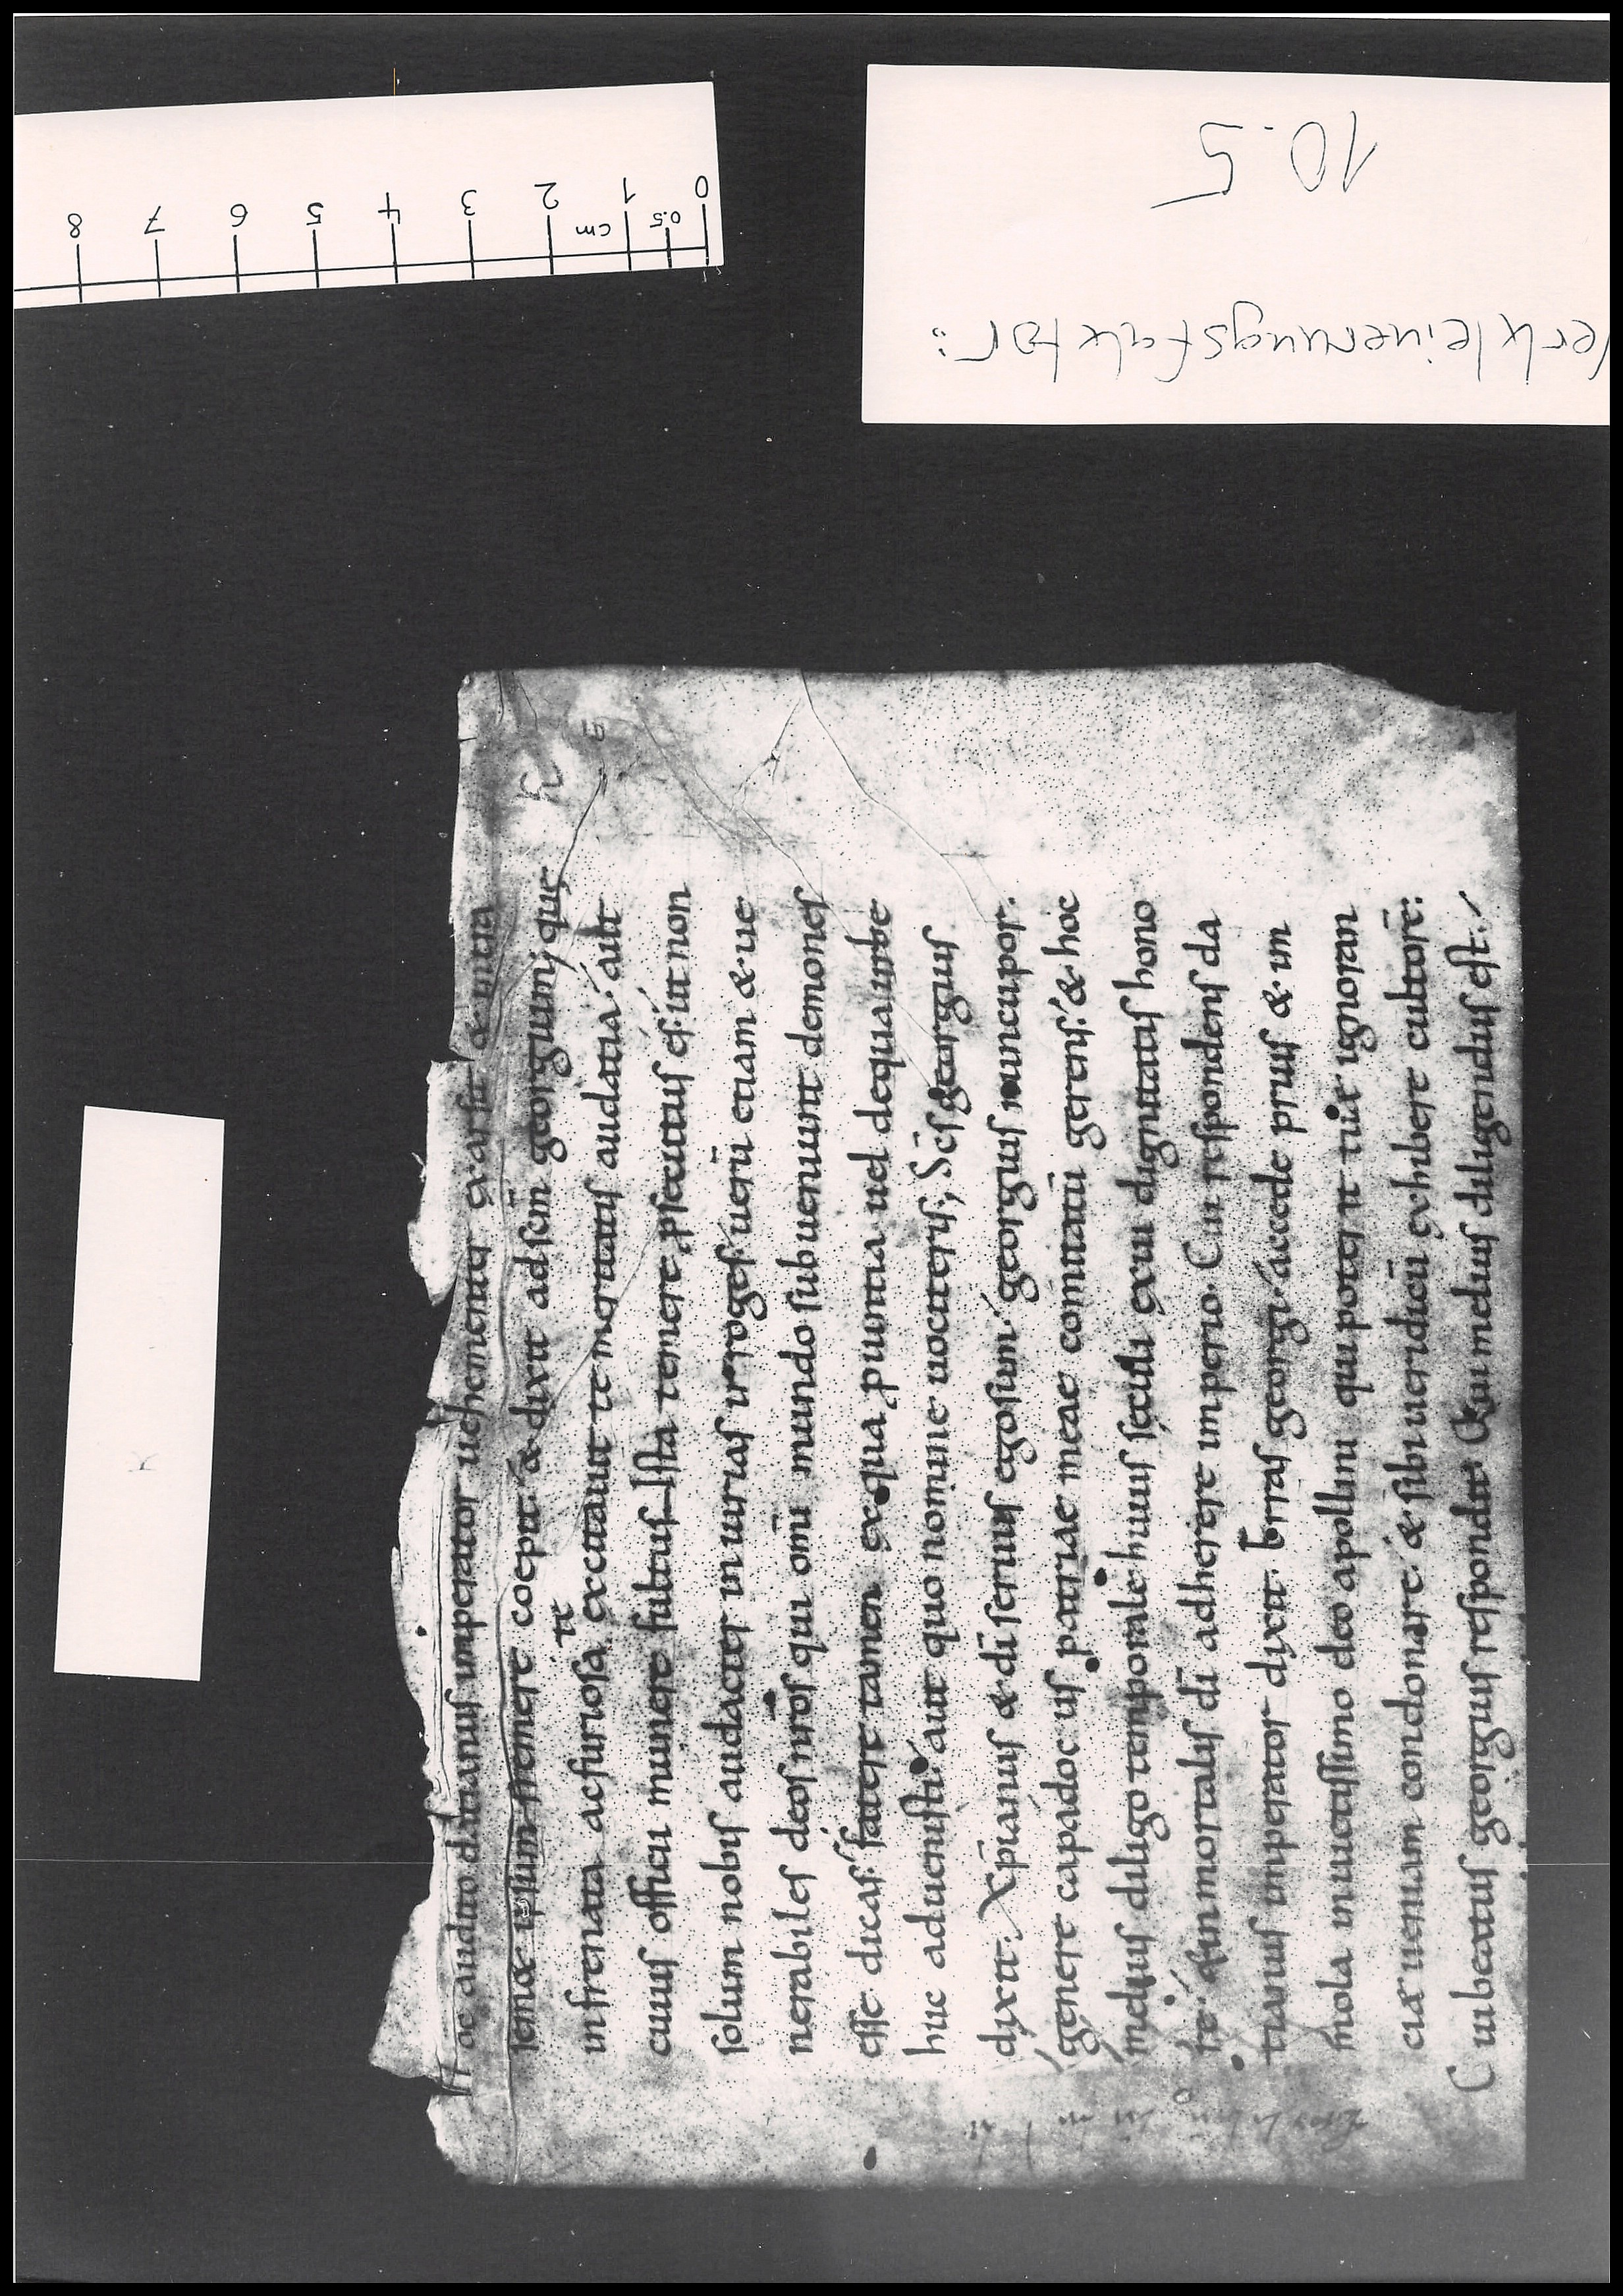 0 0.5 1 cm 2 3 4 5 6 7 8
10.5
Verkleinerungsfaktor:
K
oc audito datianus imperator uehementer exarsit & intra
semet ipsum fremere coepit & dixit ad scm̄ georgium; que
te
infrenata ac furiosa excitauit temeritatis audatia aut
cuius officii munere fultus ista temere psecutus es ut non
solum nobis audacter iniurias irroges uerū etiam & ue
nerabiles deos nr̄os qui omī mundo subueniunt demones
esse dicas fatere tamen ex qua puintia uel de qua urbe
huc aduenisti aut quo nomine uociteris; Scs̄ georgius
dixit. Xp̄ianus & dī seruus ego sum georgius nuncupor.
genere capadocus patriae meae comitatū gerens & hoc
melius diligo temporale huius sęculi exui dignitatis hono
re & inmortalis dī adherere imperio. Cū respondens da
tianus imperator dixit. Erras georgi accede prius & im
mola inuictissimo deo apollini qui poterit tuae ignoran
ciae ueniam condonare & sibi ueridicū exhibere cultorē:
Cui beatus georgius respondit Qui melius diligendus est.